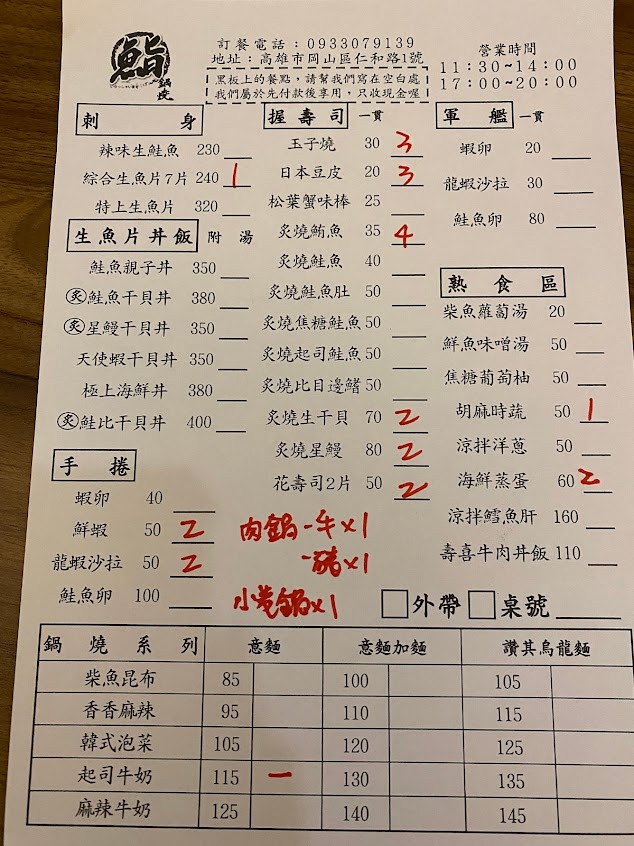 鮨
鍋燒
訂餐電話：0933079139
地址：高雄市岡山區仁和路1號
黑板上的餐點，請幫我們寫在空白處
我們屬於先付款後享用，只收現金喔
營業時間
11:30~14:00
17:00~20:00
刺身
辣味生鮭魚 230
綜合生魚片7片 240 1
特上生魚片 320
生魚片丼飯 附湯
鮭魚親子丼 350
炙鮭魚干貝丼 380
炙星鰻干貝丼 350
天使蝦干貝丼 350
極上海鮮丼 380
炙鮭比干貝丼 400
手捲
蝦卵 40
鮮蝦 50 2
龍蝦沙拉 50 2
鮭魚卵 100
握壽司 一貫
玉子燒 30 3
日本豆皮 20 3
松葉蟹味棒 25
炙燒鮪魚 35 4
炙燒鮭魚 40
炙燒鮭魚肚 50
炙燒焦糖鮭魚 50
炙燒起司鮭魚 50
炙燒比目邊鰭 50
炙燒生干貝 70 2
炙燒星鰻 80 2
花壽司2片 50 2
軍艦 一貫
蝦卵 20
龍蝦沙拉 30
鮭魚卵 80
熟食區
柴魚蘿蔔湯 20
鮮魚味噌湯 50
焦糖葡萄柚 50
胡麻時蔬 50 1
涼拌洋蔥 50
海鮮蒸蛋 60 2
涼拌鱈魚肝 160
壽喜牛肉丼飯 110
肉鍋-牛x1
-豬x1
小卷鍋x1
外帶 桌號
鍋燒系列 意麵 意麵加麵 讚其烏龍麵
柴魚昆布 85 100 105
香香麻辣 95 110 115
韓式泡菜 105 120 125
起司牛奶 115 一 130 135
麻辣牛奶 125 140 145